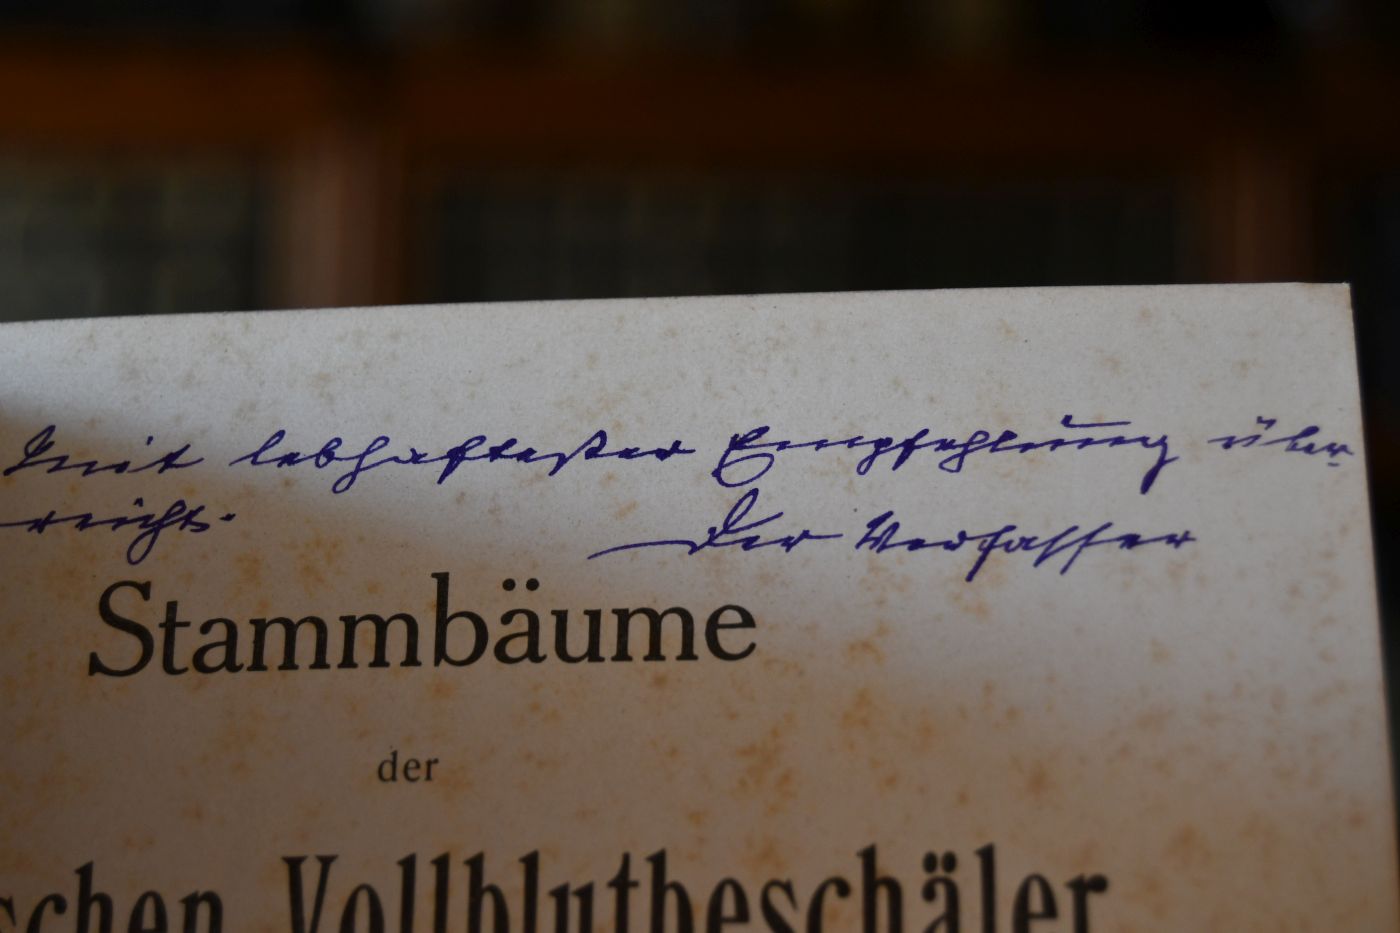 Mit lebhaftester Empfehlung über-
reicht.
Der Verfasser
Stammbäume
der
schen Vollblutbeschäler